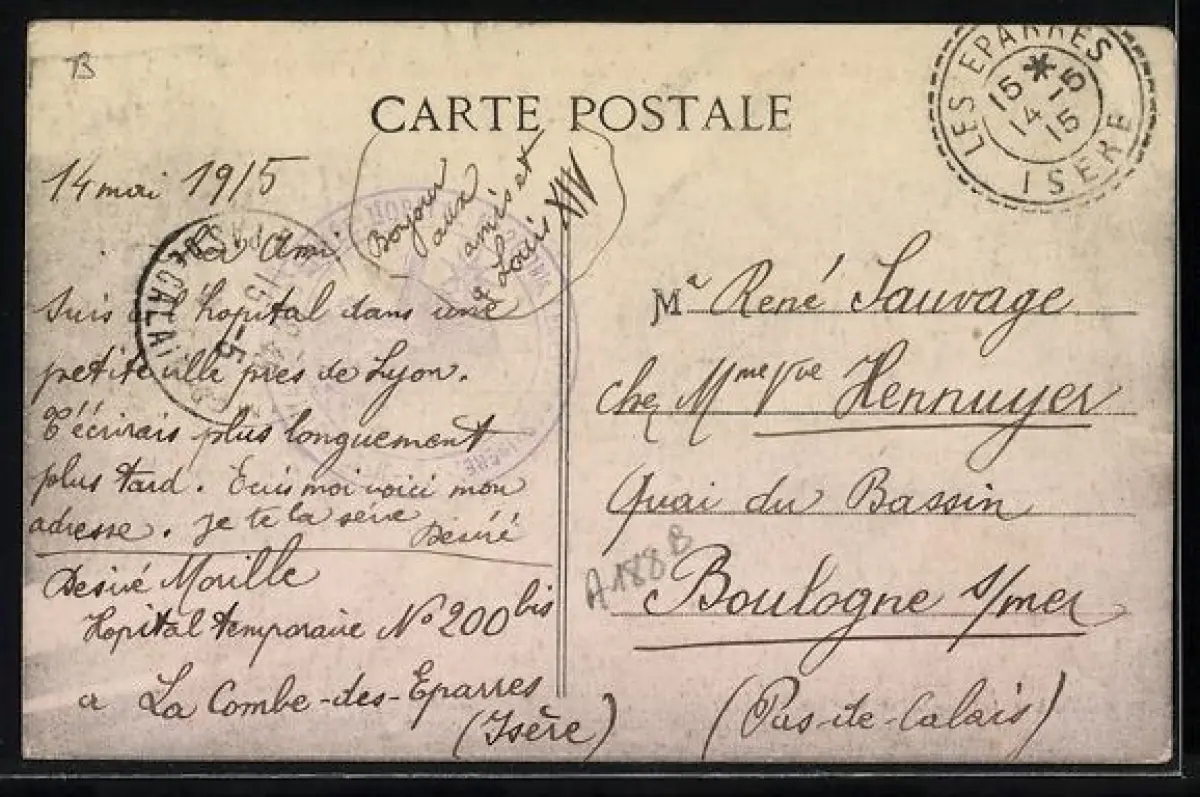 B
CARTE POSTALE
LES EPARRES
15 * 5
14 15
15
ISERE
14 mai 1915
Bonjour
aux
amis et
à Louis XIV
Ami
Suis à l'hopital dans une
petite ville près de Lyon.
T'écrirais plus longuement
plus tard. Ecris moi voici mon
adresse. je te la série
Désiré
Desiré Morille
Hopital temporaire No 200 bis
a La Combe-des-Eparres
(Isère)
Mr René Sauvage
chez Mme Vve Hennuyer
Quai du Bassin
A188B
Boulogne s/mer
(Pas-de-Calais)